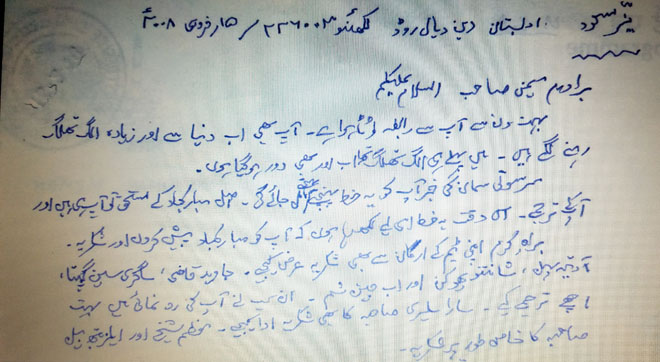 نیّر مسعود ادبستان دین دیال روڈ لکھنؤ ۲۲۶۰۰۳ / ۱۵ فروری ۲۰۰۸ء
برادرم میمن صاحب السلام علیکم
بہت دن سے آپ سے رابطہ ٹوٹا ہوا ہے۔ آپ بھی اب دنیا سے اور زیادہ الگ تھلگ
رہنے لگے ہیں۔ میں پہلے ہی الگ تھلگ تھا اب اور بھی دور ہو گیا ہوں۔
سرسوتی سمان کی خبر آپ کو یہ خط پہنچنے مل جائے گی۔ اصل مبارکباد کے مستحق تو آپ ہی ہیں اور
آپ کے ترجمے۔ اس وقت یہ خط اسی لیے لکھ رہا ہوں کہ آپ کو مبارکباد پیش کروں اور شکریہ۔
براہ کرم اپنی ٹیم کے ارکان سے بھی شکریہ عرض کیجیے۔ جاوید قاضی، ساگری سین گپتا،
آدتیہ بہل، شانتنو پھوکن اور اب میں
اچھے ترجمے کیے۔ سارا سلیری صاحبہ کا بھی شکریہ ادا کیجیے۔ ان سب نے آپ کی رہ نمائی میں بہت
صاحبہ کا خاص طور پر شکریہ۔ محمد اعظم شیخ اور ایلزبتھ بیل